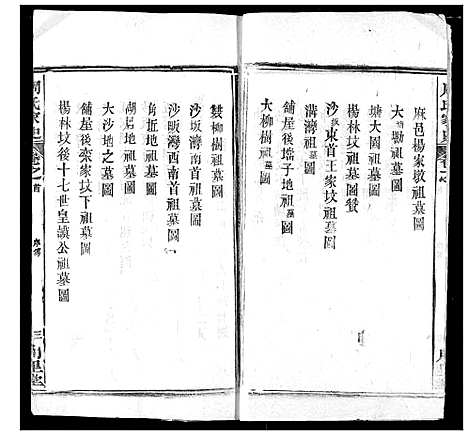 麻邑楊家墩祖墓圖
大塘祖墓圖
塘大園祖墓圖
楊林坟祖墓圖贊
沙坂東首王家坟祖墓圖
溝灣祖墓圖
舖屋後壋子地祖墓圖
大柳樹祖墓圖
雙柳樹祖墓圖
沙坂灣南首祖墓圖
沙畈灣西南首祖墓圖
角近地祖墓圖
湖后地祖墓圖
大沙地之墓圖
舖屋後欒家坟下祖墓圖
楊林坟後十七世皇謨公祖墓圖
周氏家史
卷之首
三